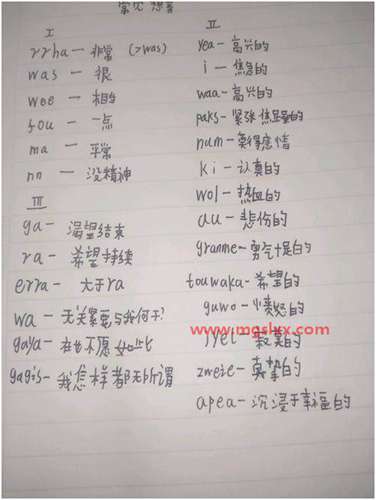 常见想音
I
rrha — 非常 (>was)
was — 很
wee — 相当
fou — 一点
ma — 平常
nn — 没精神
III
ga — 渴望结束
ra — 希望持续
erra — 大于ra
wa — 无关紧要与我何干?
gaya — 在也不愿如此
gagis — 我怎样者都无所谓
II
yea — 高兴的
i — 焦急的
waa — 高兴的
paks — 紧张焦虑的
num — 莫得感情
ki — 认真的
wol — 热血的
au — 悲伤的
granme — 勇气十足的
touwaka — 希望的
guwo — 愤怒的
jyel — 寂寞的
zweie — 真挚的
apea — 沉浸于幸福的
www.mgslxx.com